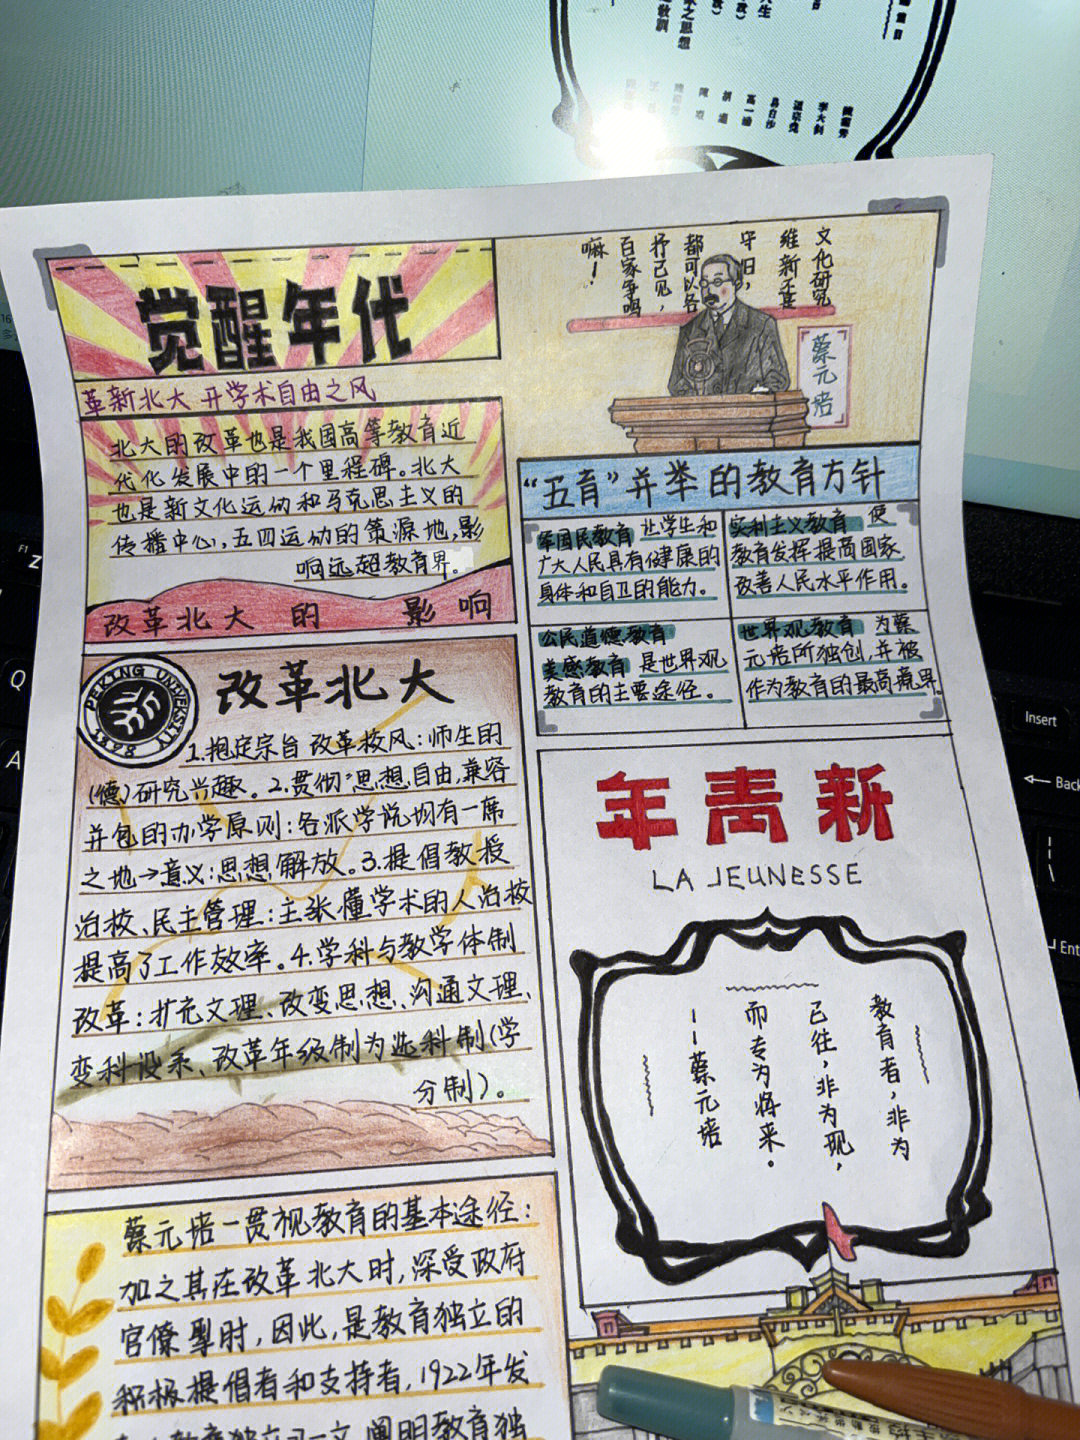 觉醒年代
革新北大 开学术自由之风
北大的改革也是我国高等教育近
代化发展中的一个里程碑。北大
也是新文化运动和马克思主义的
传播中心,五四运动的策源地,影
响远超教育界。
改革北大的 影响
文化研究
维新不要
守旧,
都可以各
抒己见,
百家争鸣
嘛!
蔡元培
“五育”并举的教育方针
军国民教育 让学生和
广大人民具有健康的
身体和自卫的能力。
实利主义教育 使
教育发挥提高国家
改善人民水平作用。
公民道德教育
美感教育 是世界观
教育的主要途径。
世界观教育 为蔡
元培所独创,并被
作为教育的最高境界。
PEKING UNIVERSITY
1898
改革北大
1.抱定宗旨 改革校风:师生的
(德)研究兴趣。2.贯彻“思想自由,兼容
并包的办学原则:各派学说均有一席
之地→意义:思想解放。3.提倡教授
治校、民主管理:主张懂学术的人治校
提高了工作效率。4.学科与教学体制
改革:扩充文理、改变思想、沟通文理、
变科设系、改革年级制为选科制(学
分制)。
新青年
LA JEUNESSE
教育者,非为
已往,非为现,
而专为将来。
--蔡元培
蔡元培一贯视教育的基本途径:
加之其在改革北大时,深受政府
官僚掣肘,因此,是教育独立的
积极提倡者和支持者,1922年发
教育独立》一文,阐明教育独
李大钊
高一涵
Insert
Back
Ent
F1
Z
Q
A